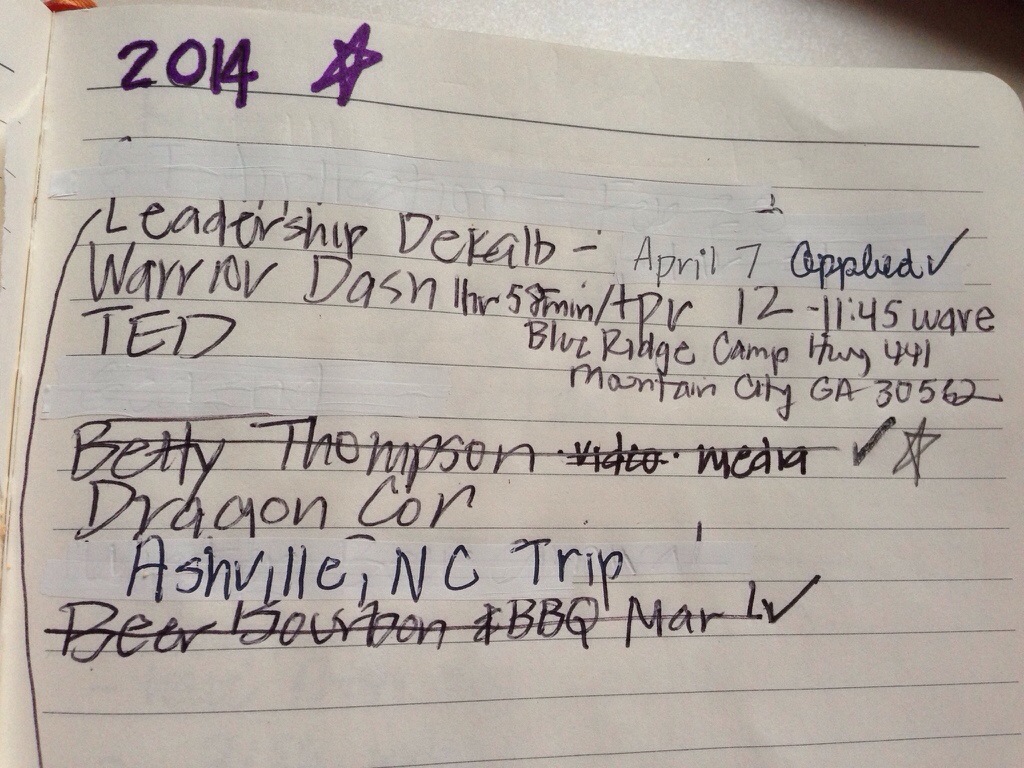 2014
Leadership Dekalb - April 7 Applied ✓
Warrior Dash 1hr 58min/ Apr 12 - 11:45 wave
TED Blue Ridge Camp Hwy 441
Mountain City GA 30562
Betty Thompson video media ✓
Dragon Con
Ashville, NC Trip
Beer Bourbon & BBQ Mar 1 ✓